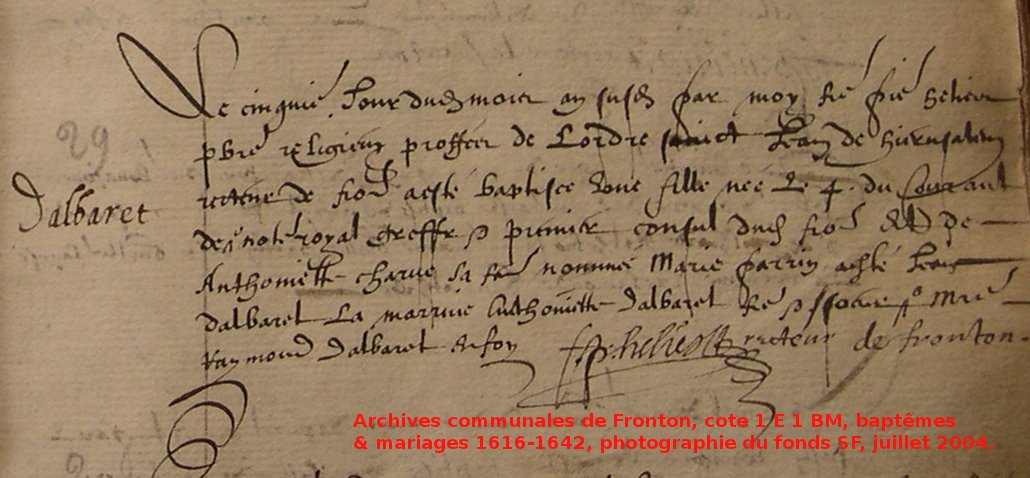 Dalbaret
Le cinquie Jour dud moier an susd par moy fre pie heliot
pbre religieux proffer de Lordre sainct Jean de hierusalem
recteur de fron aesté baptisee Une fille nee Le 4. du Courant
de notre royal greffr premier consul dud fron & de
Anthoniette charue sa fae nommee Marie parrin aesté Jean
dalbaret La marrine Anthoniette dalbaret Re
Raymond Dalbaret & foy recteur de fronton.
Archives communales de Fronton, cote 1 E 1 BM, baptêmes
& mariages 1616-1642, photographie du fonds SF, juillet 2004.